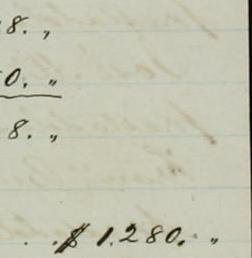 8. "
0. "
8. "
$ 1.280. "